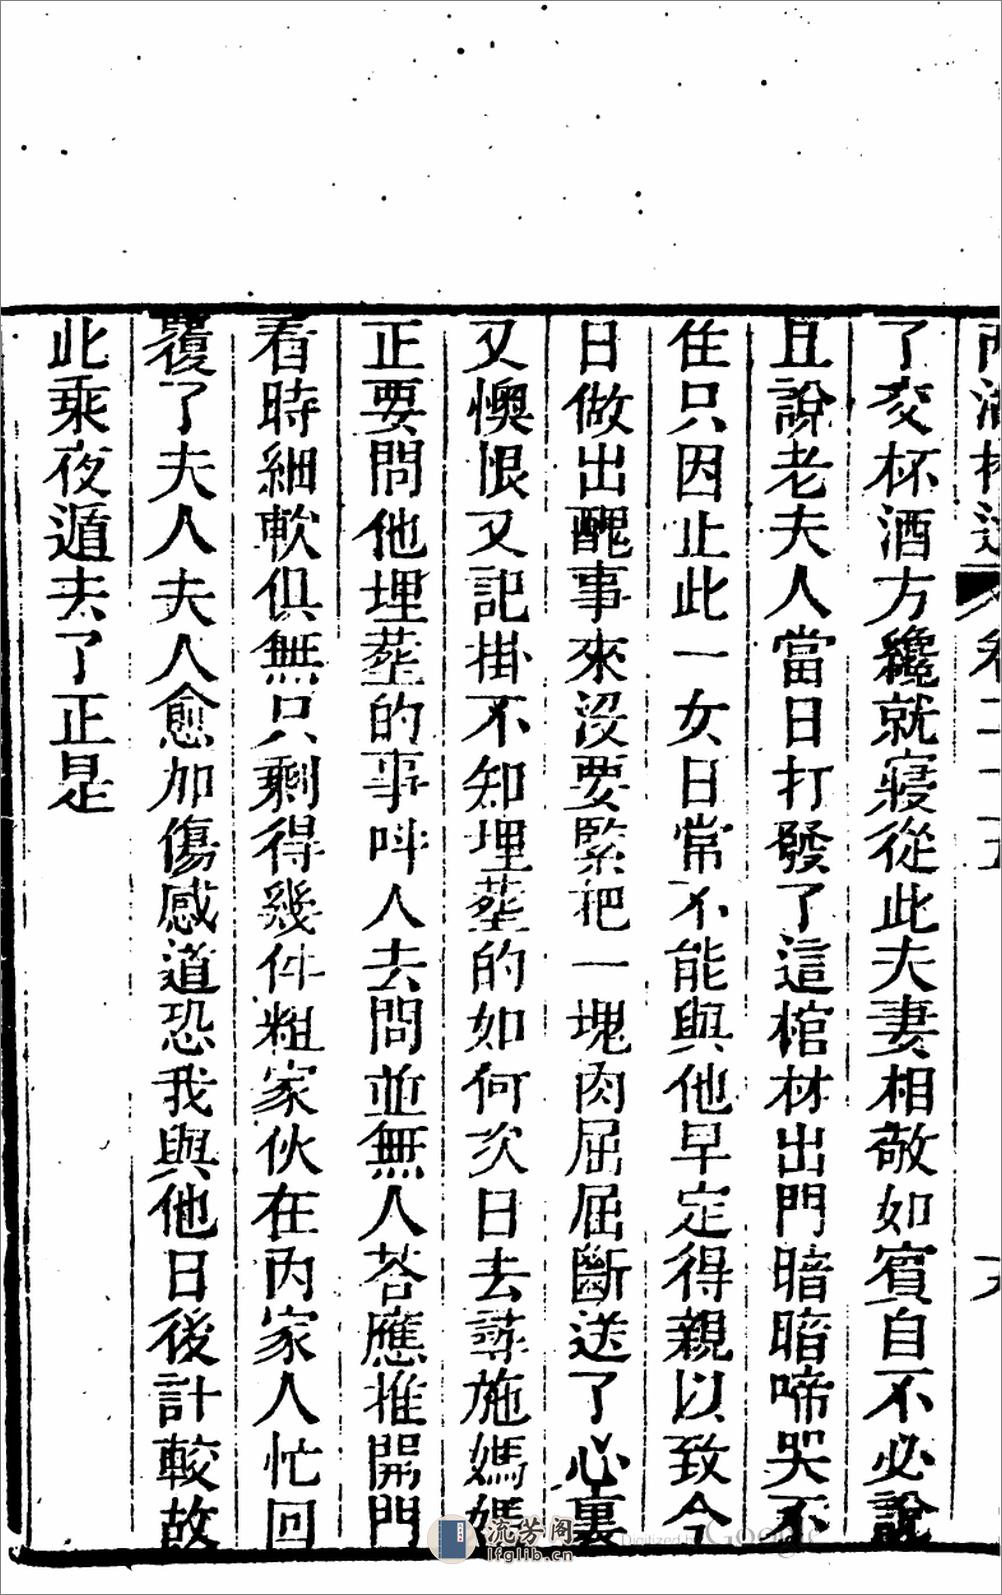 了交杯酒方纔就寢從此夫妻相敬如賓自不必說
且說老夫人當日打發了這棺材出門暗暗啼哭不
住只因止此一女日常不能與他早定得親以致今
日做出醜事來沒要緊把一塊肉屈屈斷送了心裏
又懊恨又記掛不知埋塟的如何次日去尋施媽媽
正要問他埋塟的事呌人去問並無人荅應推開門
看時細軟俱無只剩得幾件粗家伙在內家人忙回
覆了夫人夫人愈加傷感道恐我與他日後計較故
此乘夜遁去了正是
流芳阁
lfglib.cn
Digitized by Google